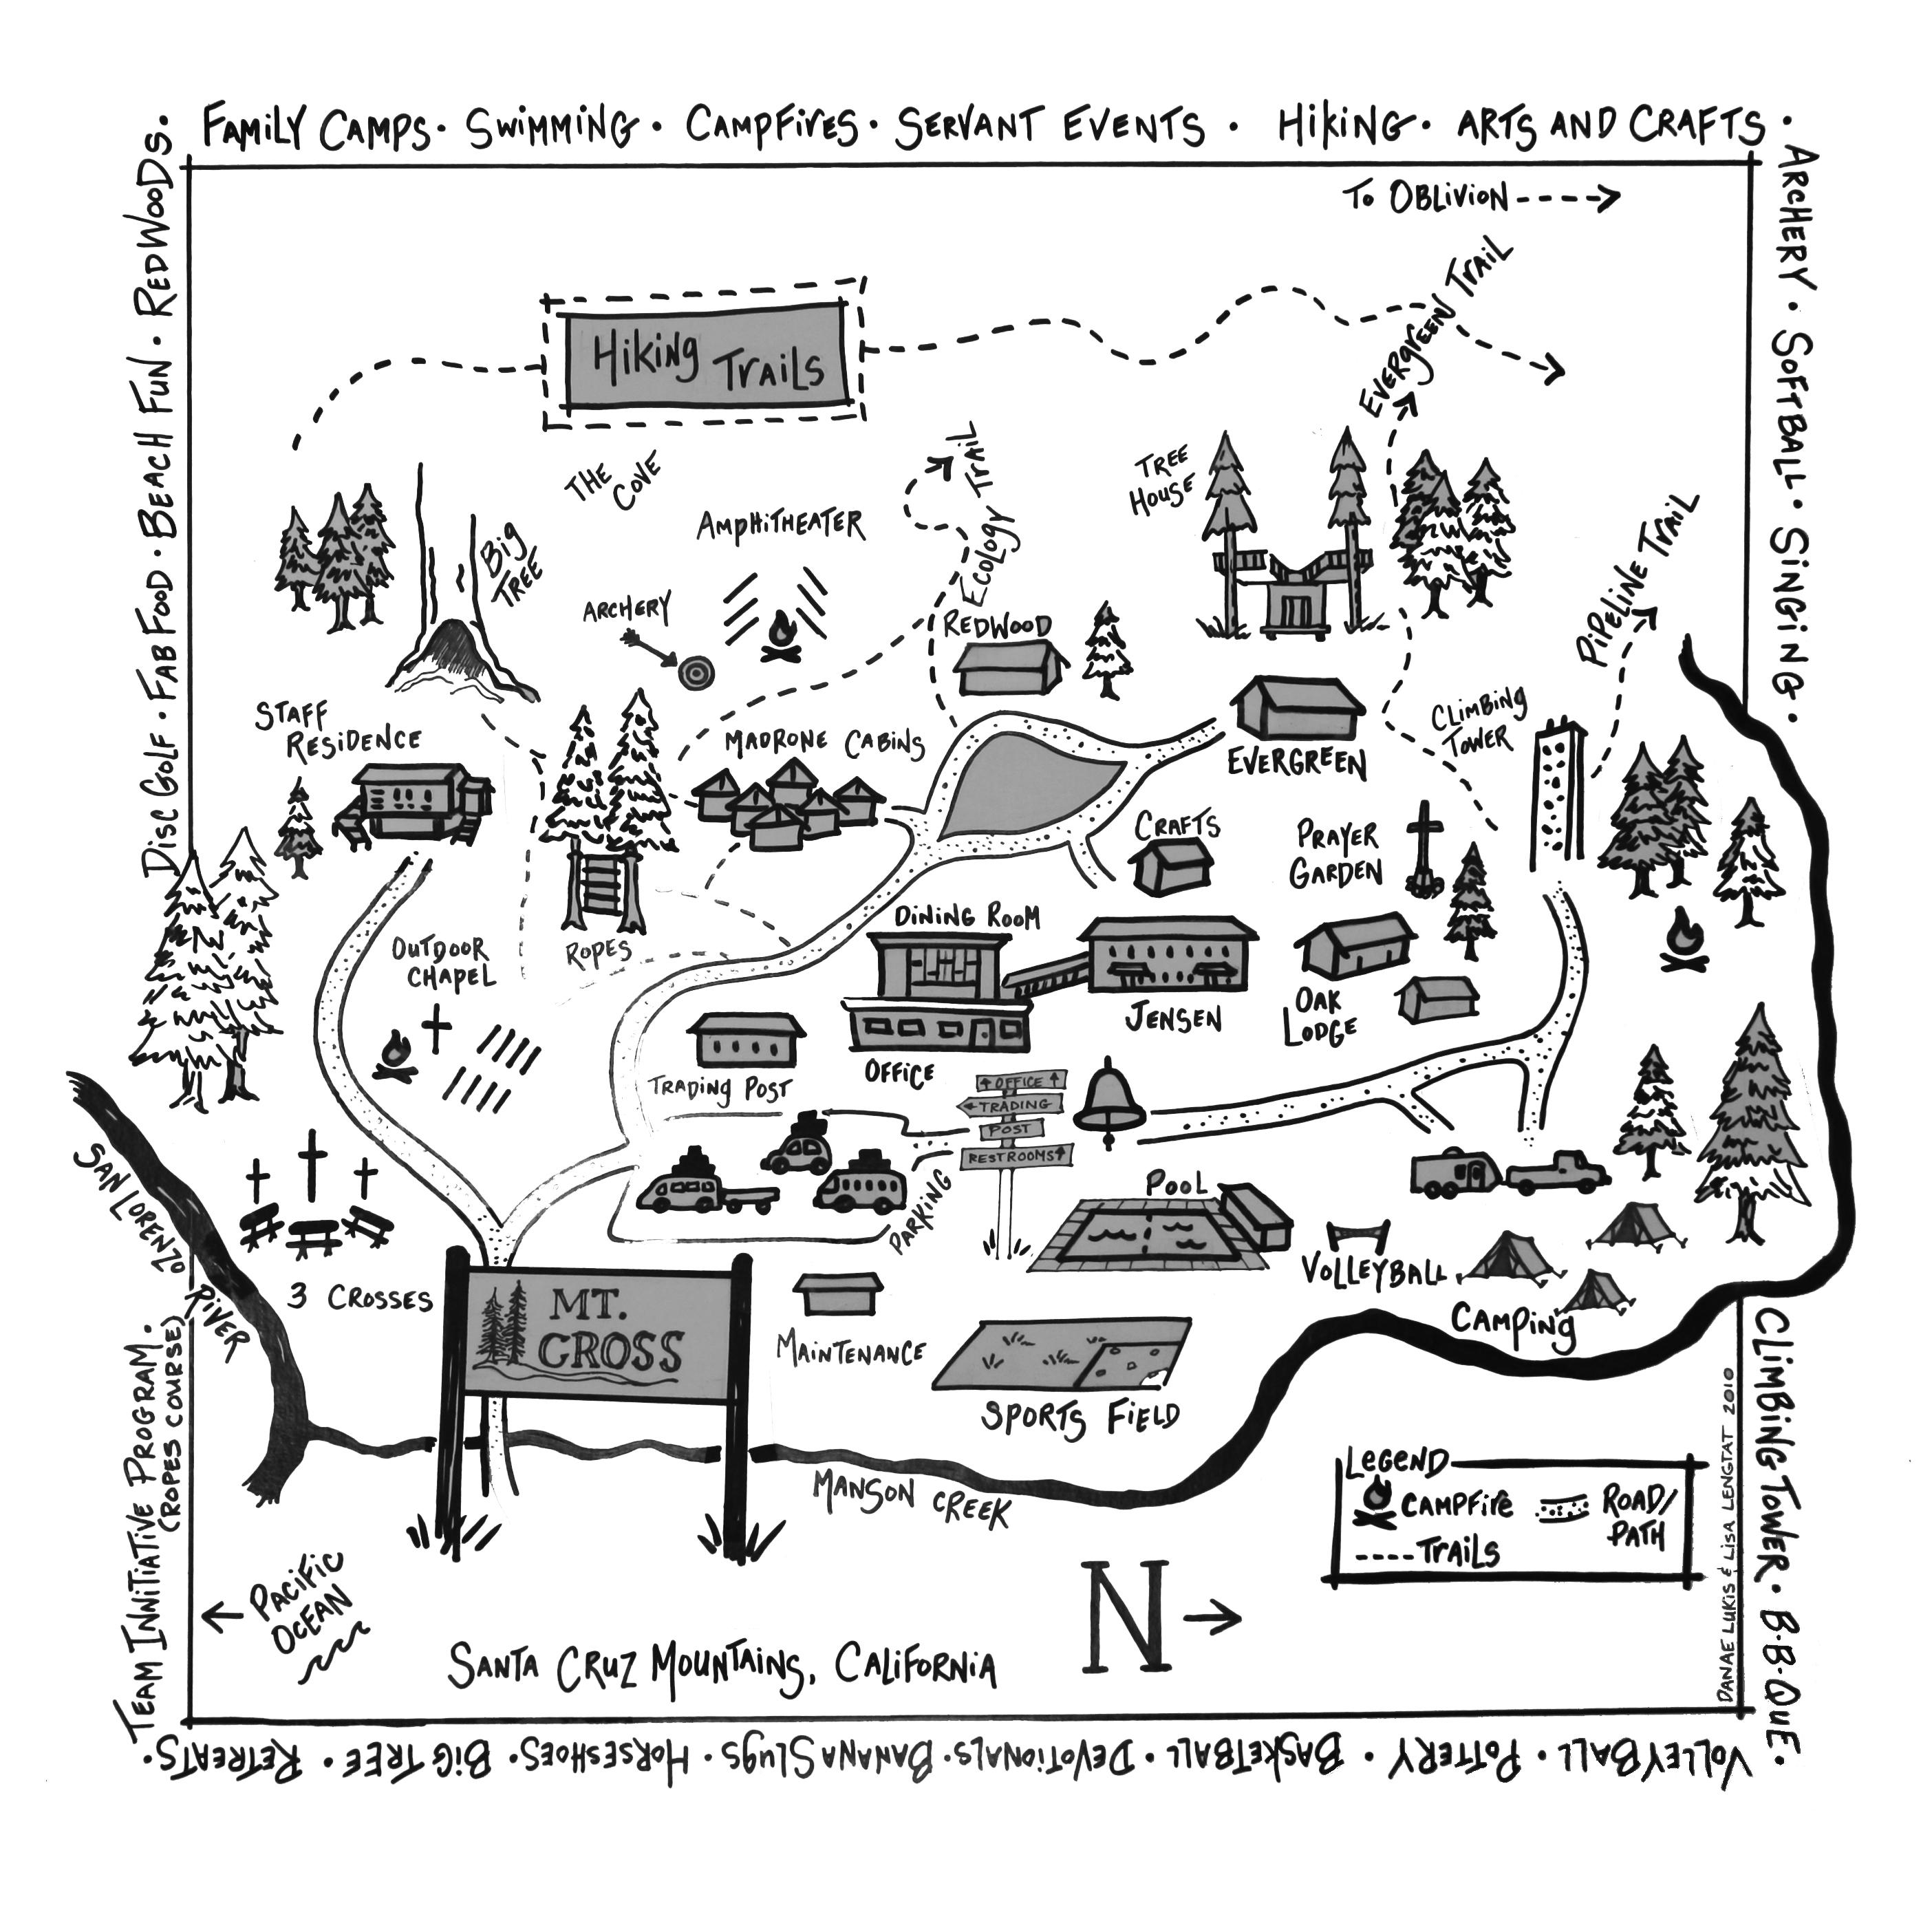 FAMILY CAMPS · SWIMMING · CAMPFIRES · SERVANT EVENTS · HIKING · ARTS AND CRAFTS ·
ARCHERY · SOFTBALL · SINGING ·
CLIMBING TOWER · B·B·QUE ·
VOLLEYBALL · POTTERY · BASKETBALL · DEVOTIONALS · BANANA SLUGS · HORSESHOES · BIG TREE · RETREATS ·
TEAM INNITIATIVE PROGRAM ·
(ROPES COURSE)
DISC GOLF · FAB FOOD · BEACH FUN · REDWOODS ·
TO OBLIVION
EVERGREEN TRAIL
HIKING TRAILS
THE
COVE
ECOLOGY TRAIL
TREE
HOUSE
AMPHITHEATER
BIG
TREE
PIPELINE TRAIL
ARCHERY
REDWOOD
STAFF
RESIDENCE
MADRONE CABINS
EVERGREEN
CLIMBING
TOWER
CRAFTS
PRAYER
GARDEN
DINING ROOM
OUTDOOR
CHAPEL
ROPES
JENSEN
OAK
LODGE
TRADING POST
OFFICE
OFFICE
TRADING
POST
RESTROOMS
PARKING
POOL
SAN LORENZO RIVER
3 CROSSES
VOLLEYBALL
CAMPING
MT.
CROSS
MAINTENANCE
SPORTS FIELD
MANSON CREEK
LEGEND
CAMPFIRE
ROAD/
PATH
TRAILS
PACIFIC
OCEAN
N
SANTA CRUZ MOUNTAINS, CALIFORNIA
DANAE LUKIS & LISA LENGTAT 2010